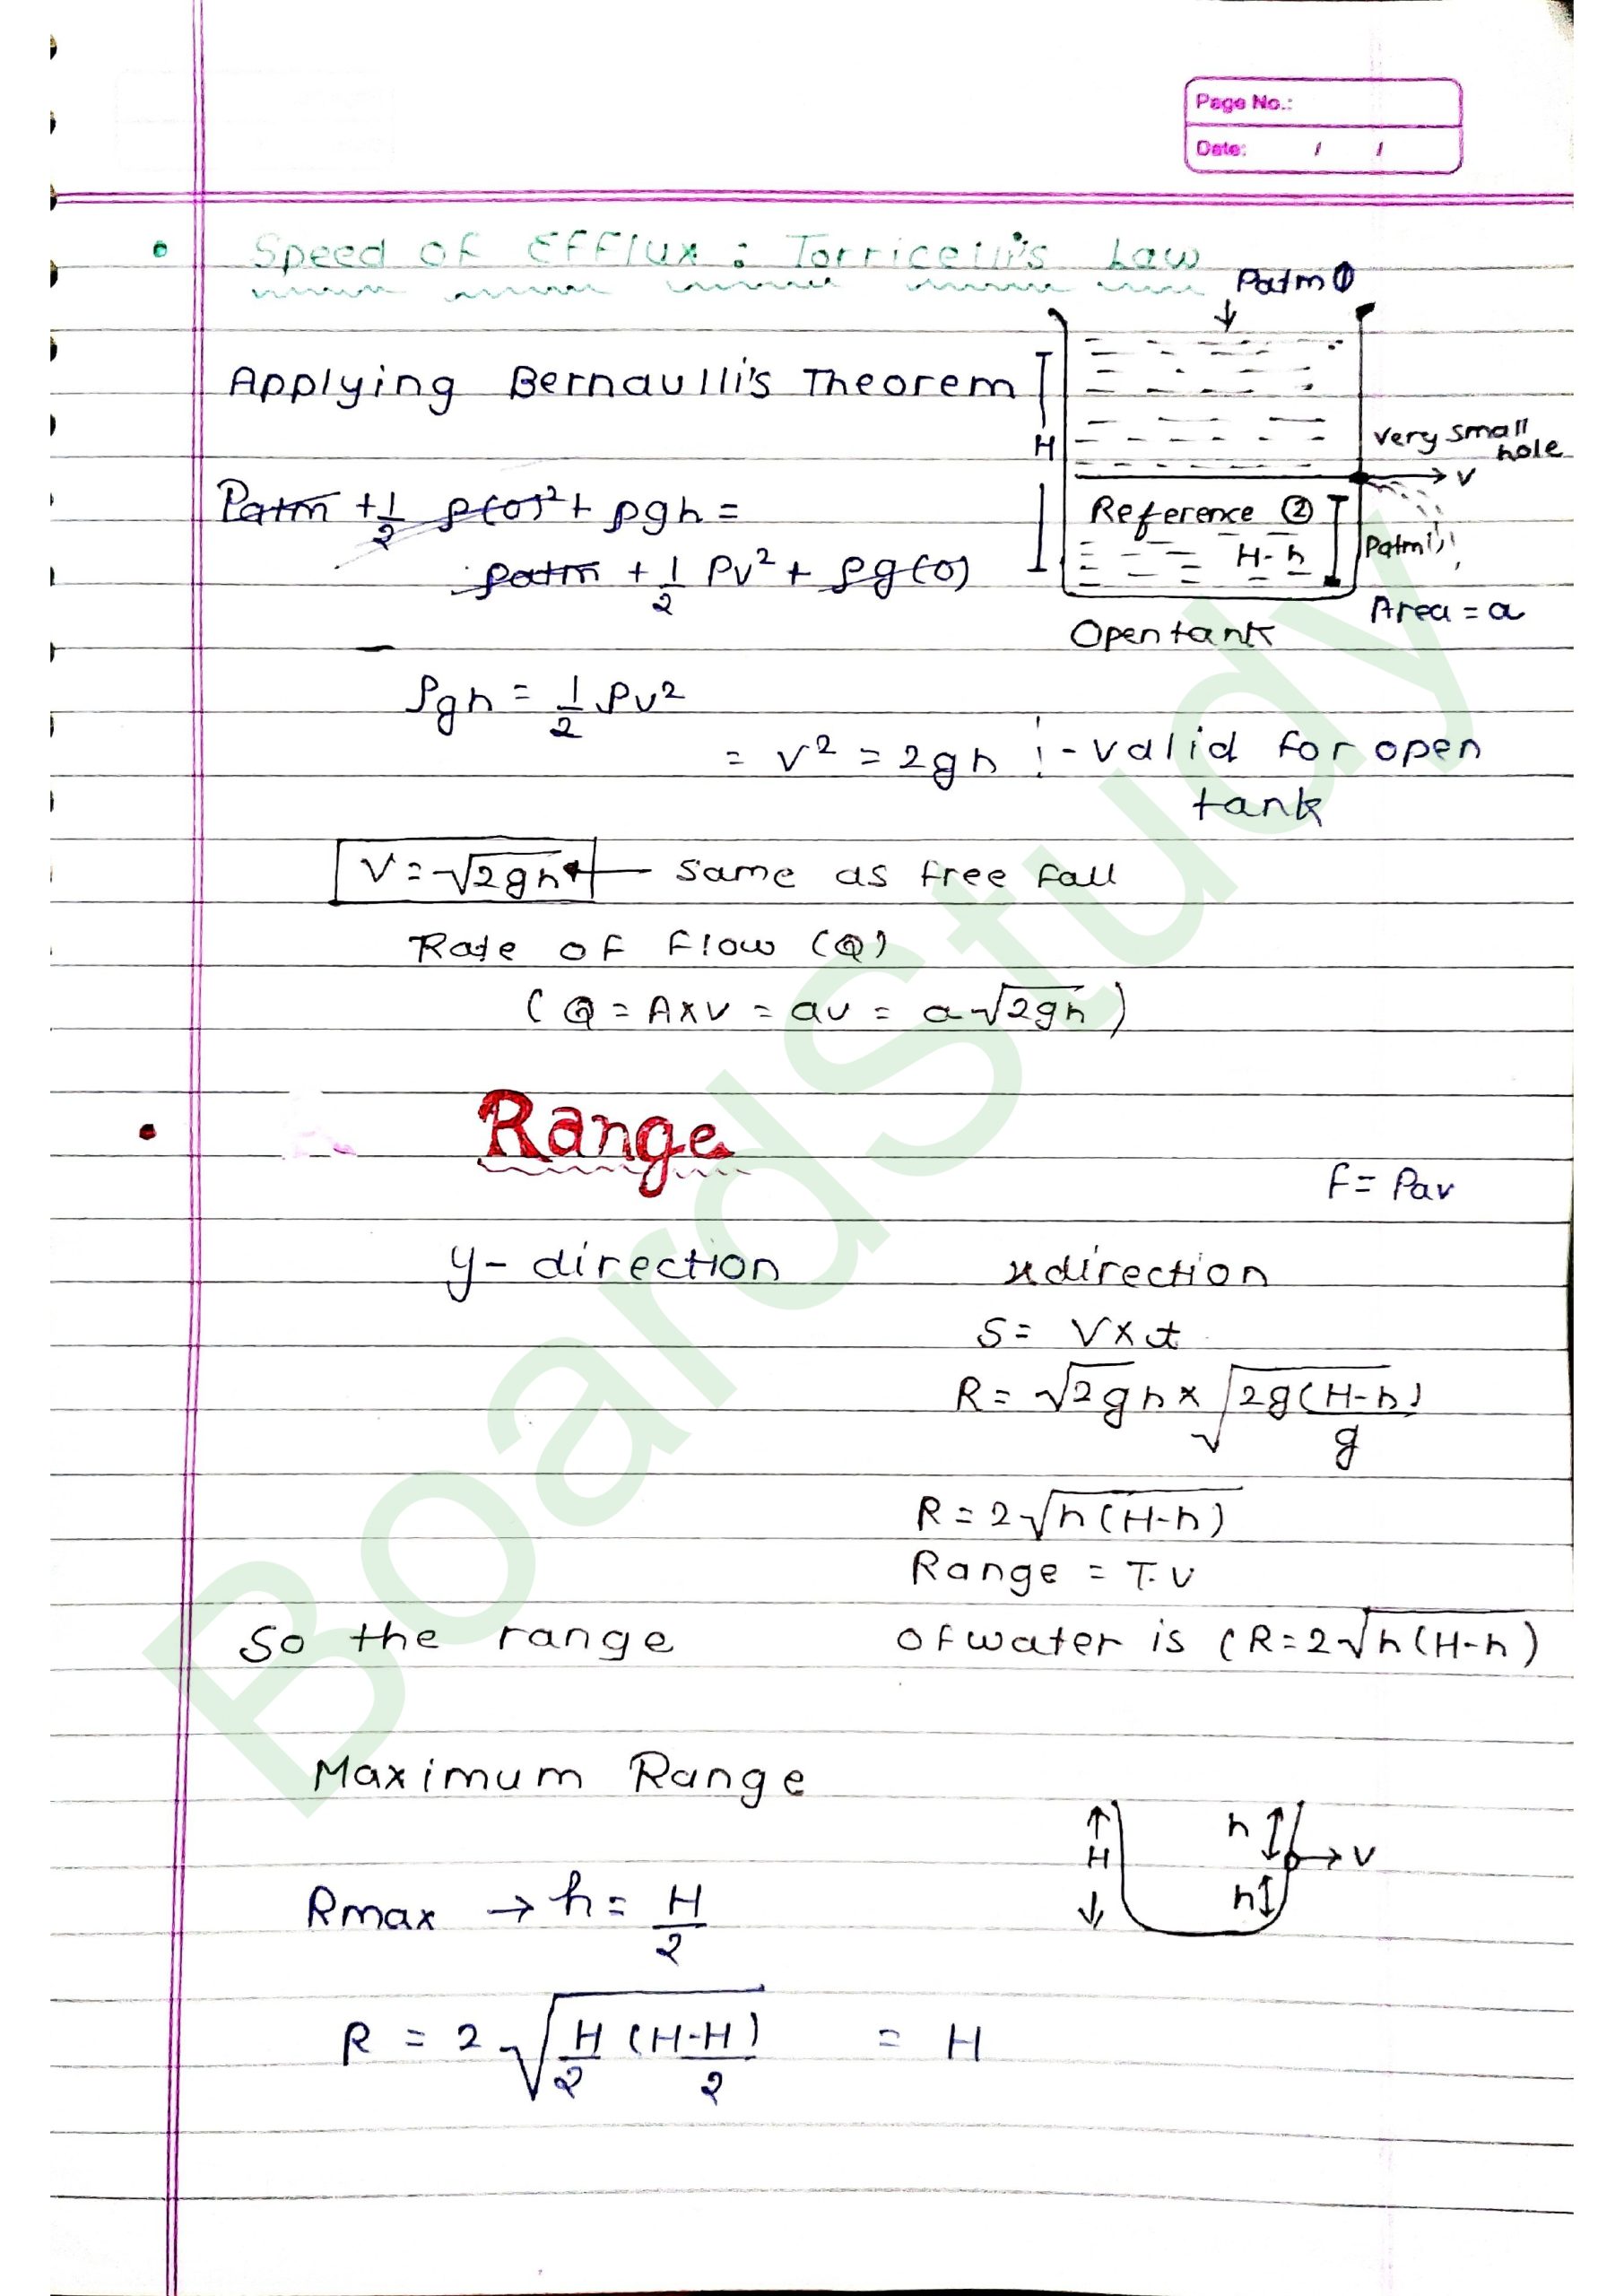 Page No.:
Date: / /
• Speed of Efflux : Torricelli's Law
Patm ①
Applying Bernaulli's Theorem
H
very small
hole
v
Patm + 1/2 ρ(0)² + ρgh =
Reference ②
patm + 1/2 ρv² + ρg(0)
H-h
Patm
Area = a
Open tank
ρgh = 1/2 ρv²
= v² = 2gh :- valid for open
tank
V = √2gh ← same as free fall
Rate of flow (Q)
(Q = A×V = av = a√2gh)
• Range
F = ρav
y- direction xdirection
S = V×t
R = √2gh × √2g(H-h)/g
R = 2√h(H-h)
Range = T.V
So the range of water is (R=2√h(H-h)
Maximum Range
H
h
v
h
Rmax → h = H/2
R = 2√H/2 (H-H/2) = H
BoardStudy